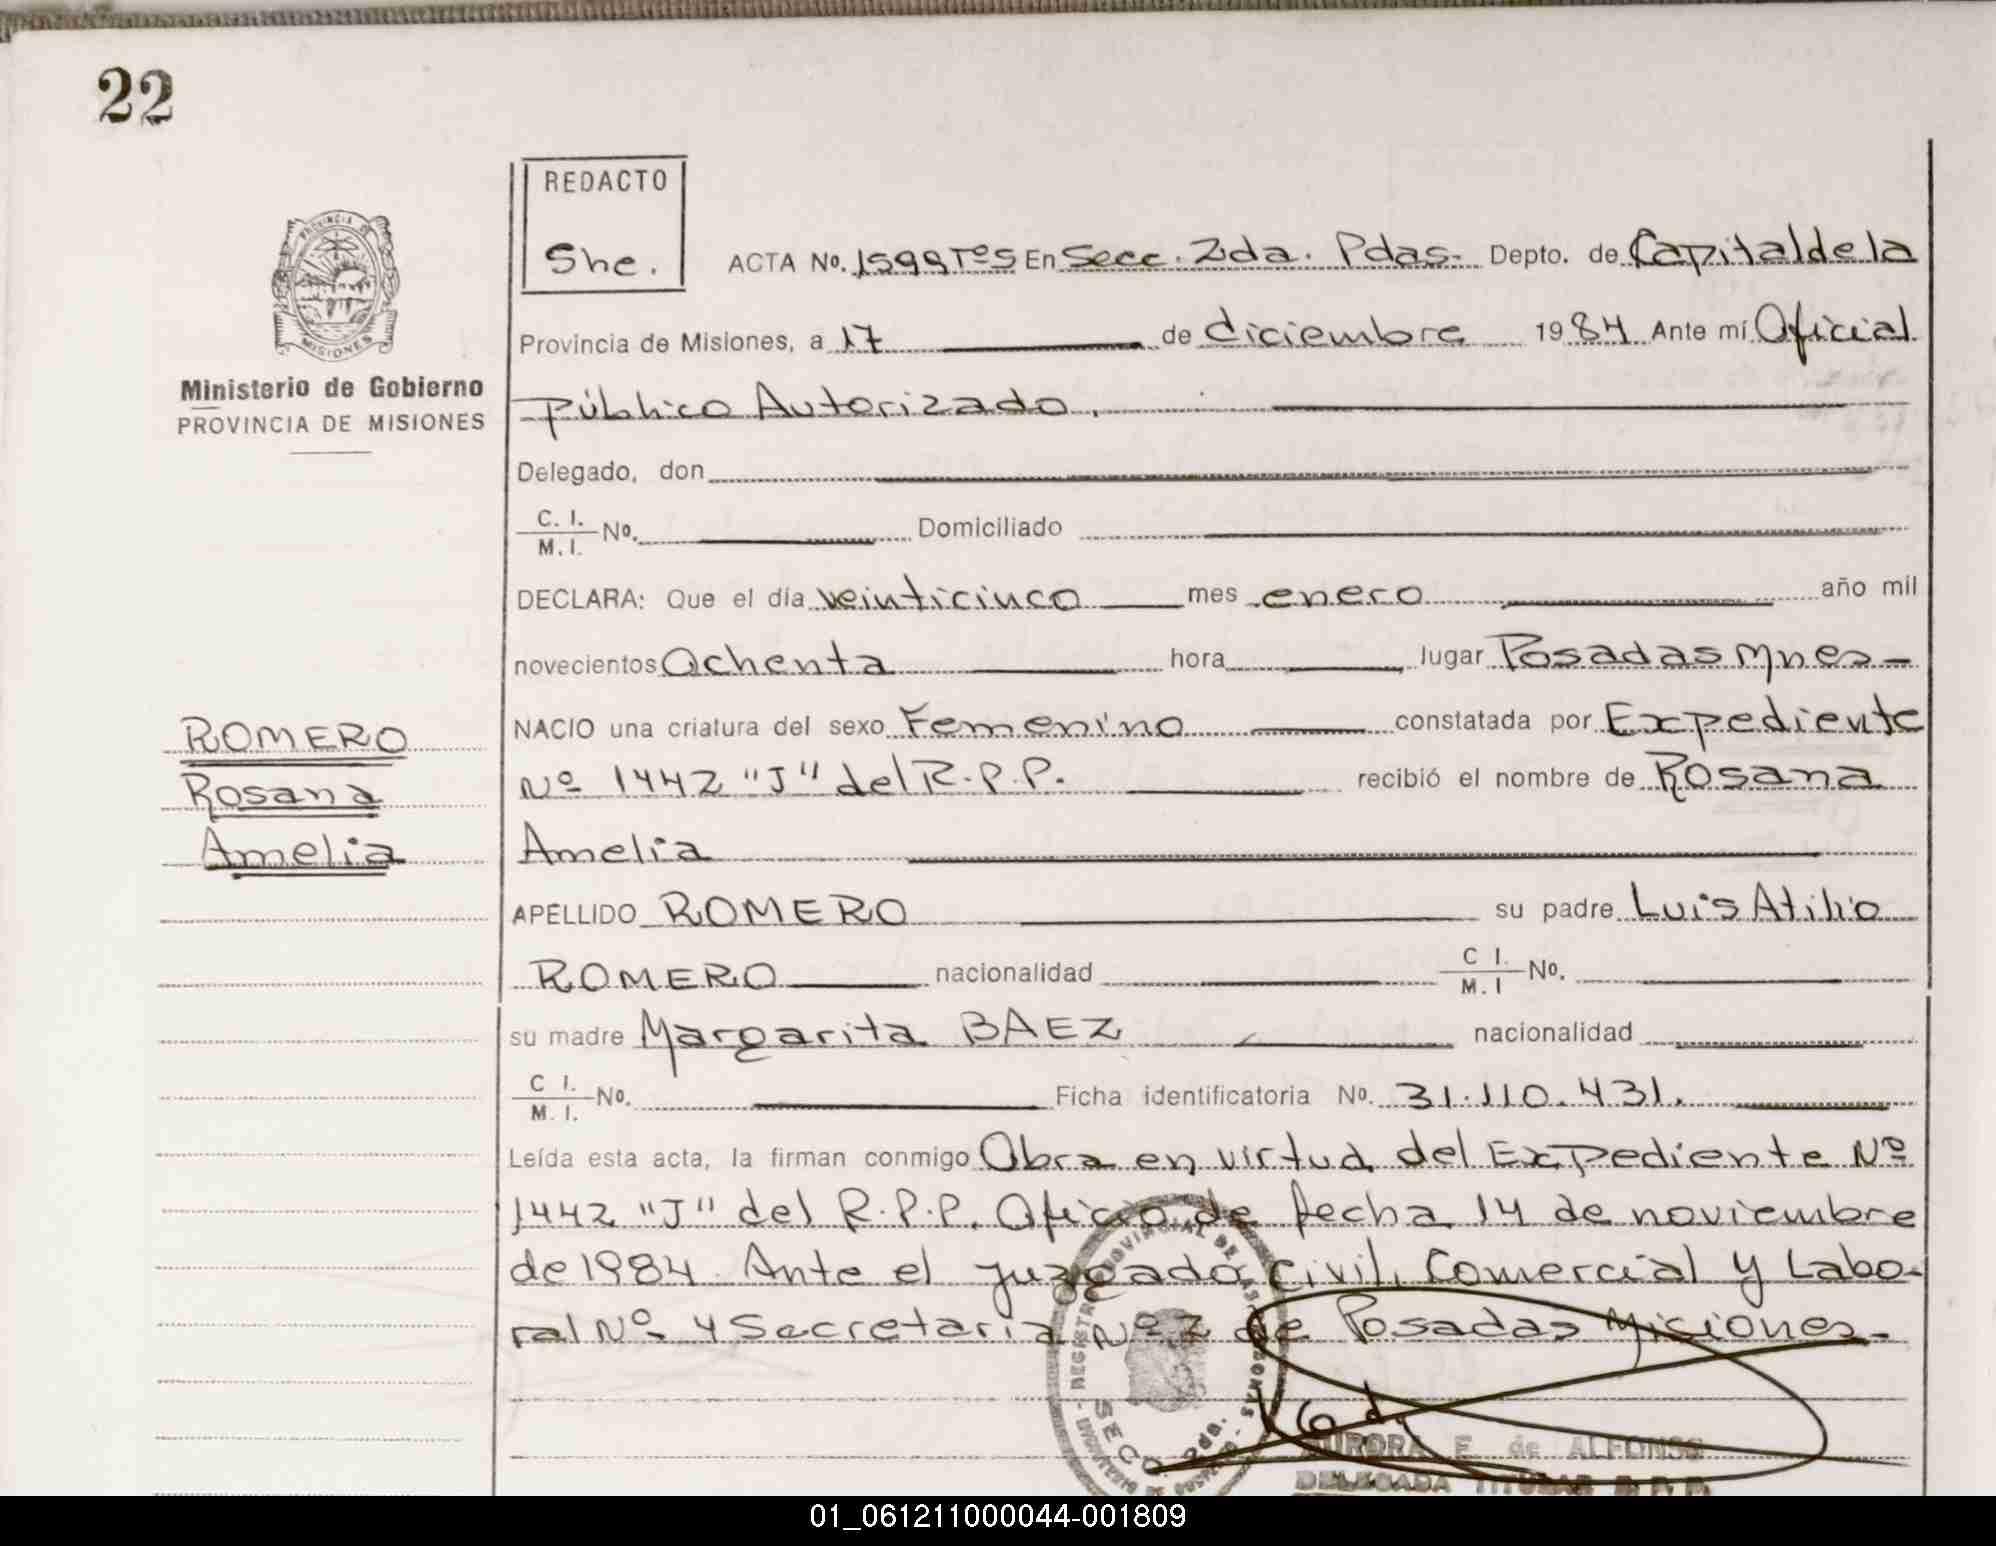 22
REDACTO
She.
ACTA No. 1599 Tº5 En Secc. 2da. Pdas. Depto. de Capital de la
PROVINCIA DE
MISIONES
Provincia de Misiones, a 17 de diciembre 1984 Ante mí Oficial
Ministerio de Gobierno
PROVINCIA DE MISIONES
Público Autorizado.
Delegado, don
C. I.
M. I. No. Domiciliado
DECLARA: Que el día veinticinco mes enero año mil
novecientos Ochenta hora lugar Posadas Mnes-
NACIO una criatura del sexo Femenino constatada por Expediente
ROMERO
Rosana
Amelia
Nº 1442 "J" del R.P.P. recibió el nombre de Rosana
Amelia
APELLIDO ROMERO su padre Luis Atilio
ROMERO nacionalidad C I. M. I No.
su madre Margarita BAEZ nacionalidad
C I. M. I. No. Ficha identificatoria No. 31.110.431.
Leída esta acta, la firman conmigo Obra en virtud del Expediente Nº
1442 "J" del R.P.P. Oficio de fecha 14 de noviembre
de 1984. Ante el Juzgado Civil, Comercial y Labo-
ral Nº 4 Secretaria Nº 2 de Posadas Misiones-
REGISTRO PROVINCIAL DE LAS PERSONAS
SECC. 2da.
AURORA E de ALFONSO
DELEGADA TITULAR R.P.P.
01_061211000044-001809